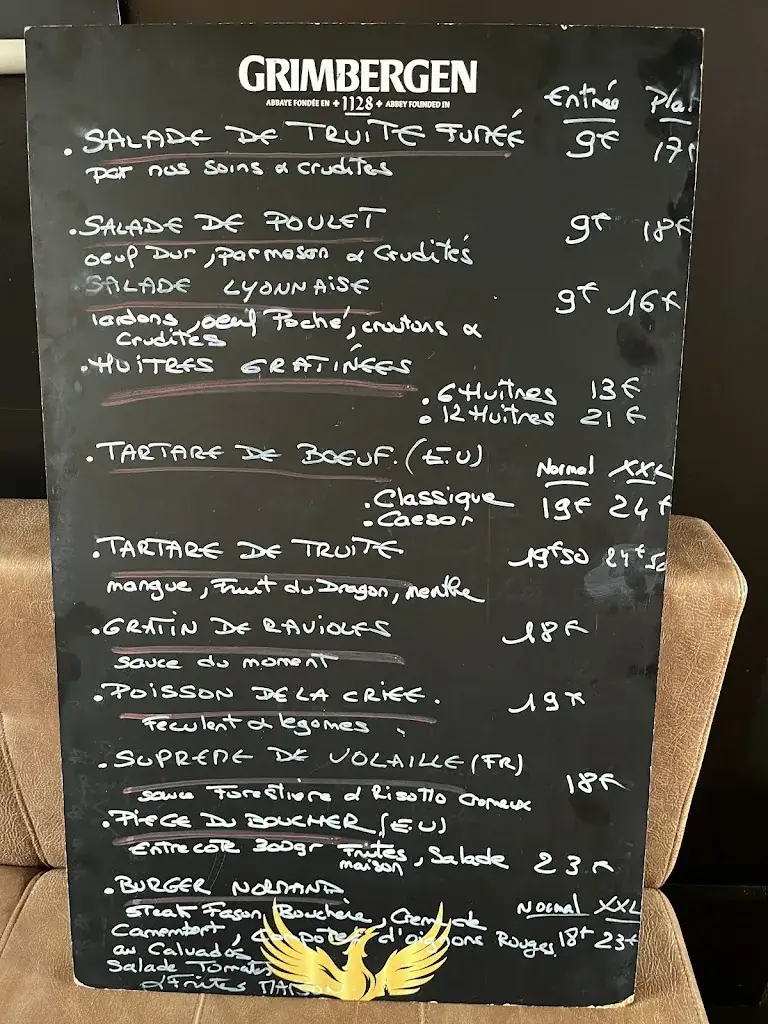 GRIMBERGEN
ABBAYE FONDÉE EN 1128 ABBEY FOUNDED IN
Entrée Plat
. SALADE DE TRUITE FUMÉE 9€ 17€
par nos soins & crudites
. SALADE DE POULET 9€ 18€
oeuf Dur, parmesan & Crudités
SALADE LYONNAISE 9€ 16€
lardons, oeuf Poché, croutons &
Crudites
. HUITRES GRATINÉES
. 6 Huîtres 13€
. 12 Huîtres 21€
. TARTARE DE BOEUF. (E.U) Normal XXL
. Classique 19€ 24€
. Caesar
. TARTARE DE TRUITE 19€50 24€50
mangue, Fruit du Dragon, menthe
. GRATIN DE RAVIOLES 18€
sauce du moment
. POISSON DE LA CRIEE. 19€
Feculent & legomes
. SUPREME DE VOLAILLE (FR) 18€
sauce Forestiere & Risotto Cremeux
. PIECE DU BOUCHER (E.U)
Entrecote 300gr Frites maison, Salade 23€
. BURGER NORMAND Normal XXL
Steak Façon Bouchère, Creme de
Camembert, Compotée d'oignons Rouges 18€ 23€
au Calvados
Salade Tomates
& Frites MAISON